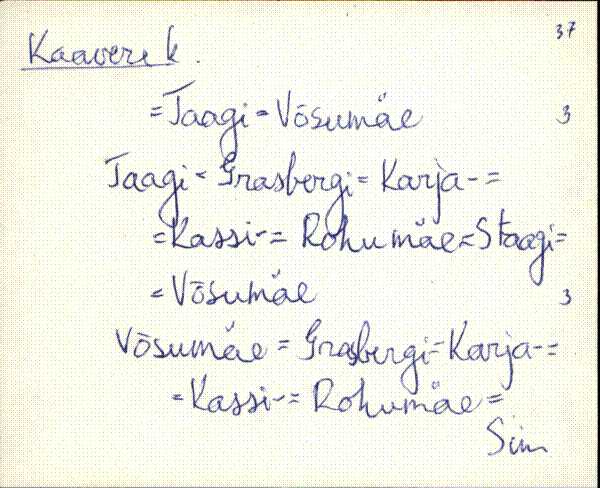 37
Kaavere k.
= Taagi = Võsumäe 3
Taagi = Grasbergi = Karja- =
= Kassi- = Rohumäe = Staagi =
= Võsumäe 3
Võsumäe = Grasbergi = Karja- =
= Kassi- = Rohumäe =
Sim